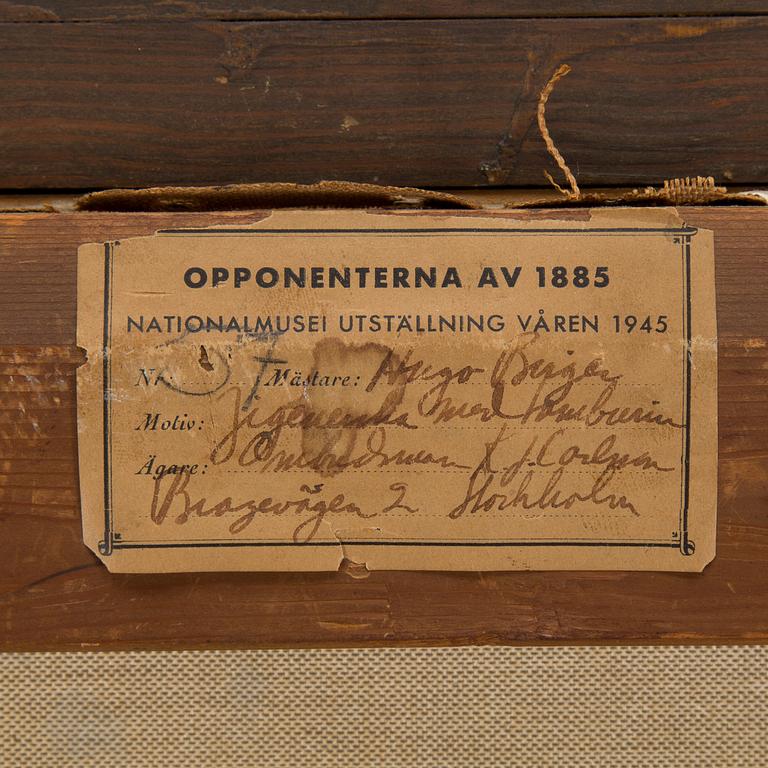 OPPONENTERNA AV 1885
NATIONALMUSEI UTSTÄLLNING VÅREN 1945
Nr. 57 Mästare: Hugo Birger
Motiv: Zigenerska med tamburin
Ägare: Ombudsman K J. Carlsson
Bragevägen 2 Stockholm